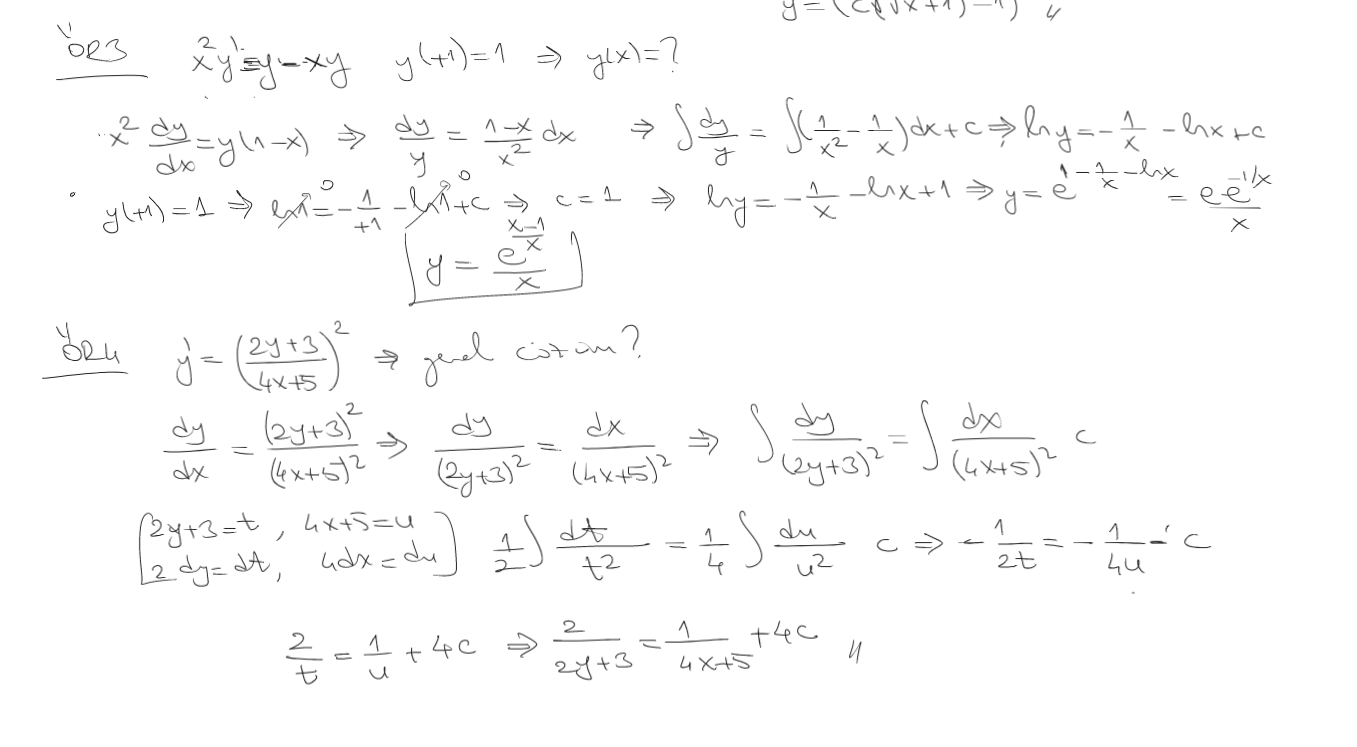 y = (c(√x+1)-1)
ÖR3 x²y' = y - xy y(+1) = 1 ⇒ y(x) = ?
x² dy/dx = y(1-x) ⇒ dy/y = (1-x)/x² dx ⇒ ∫ dy/y = ∫(1/x² - 1/x)dx + c ⇒ lny = -1/x - lnx + c
y(+1) = 1 ⇒ ln1⁰ = -1/+1 - ln1⁰ + c ⇒ c = 1 ⇒ lny = -1/x - lnx + 1 ⇒ y = e^(1 - 1/x - lnx) = e e^(-1/x)/x
y = e^((x-1)/x)/x
ÖR4 y' = ((2y+3)/(4x+5))² ⇒ genel çözüm?
dy/dx = (2y+3)²/(4x+5)² ⇒ dy/(2y+3)² = dx/(4x+5)² ⇒ ∫ dy/(2y+3)² = ∫ dx/(4x+5)² c
[2y+3 = t, 4x+5 = u
2dy = dt, 4dx = du] 1/2 ∫ dt/t² = 1/4 ∫ du/u² c ⇒ -1/2t = -1/4u - c
2/t = 1/u + 4c ⇒ 2/(2y+3) = 1/(4x+5) + 4c //